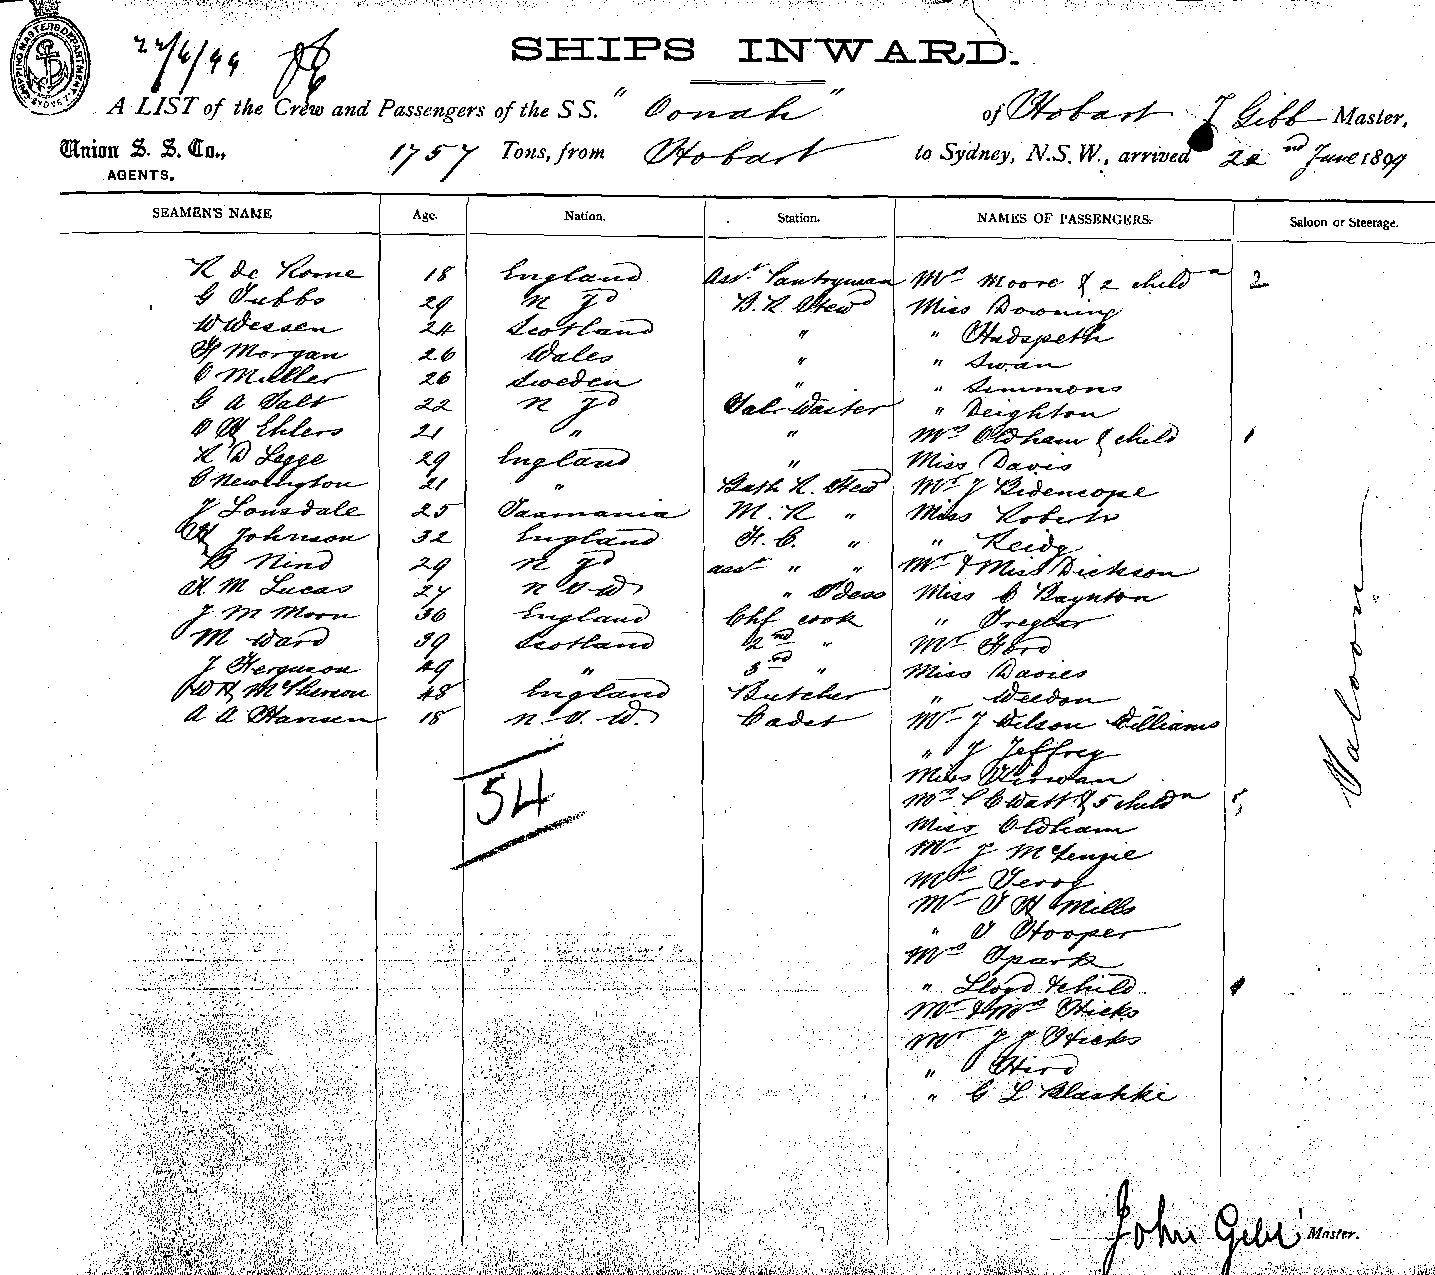 SHIPPING MASTERS DEPARTMENT SYDNEY
22/6/99
SHIPS INWARD.
A LIST of the Crew and Passengers of the S S. "Oonah" of Hobart J Gibb Master,
Union S. S. Co., 1757 Tons, from Hobart to Sydney, N.S.W., arrived 22nd June 1899
AGENTS.
SEAMEN'S NAME Age. Nation. Station. NAMES OF PASSENGERS. Saloon or Steerage.
R de Rome 18 England Asst. Pantryman Mrs Moore & 2 childn 2
G Tubbs 29 N Zd B. R Stewd Miss Downing
W Wessen 24 Scotland " " Hudspeth
H Morgan 26 Wales " " Swan
O Muller 26 Sweden " " Simmons
G A Salt 22 N Zd Sal Waiter " Deighton
O H Ehlers 21 " " Mrs Oldham & child 1
R D Legge 29 England " Miss Davis
C Newington 21 " Bath R. Stewd Mr J Bidencope
J Lonsdale 25 Tasmania M. R " Miss Roberts
H Johnson 32 England F. C. " " Reidy
B Nind 29 N Zd asst " " Mr & Miss Dickson
A M Lucas 27 N S W " S'dess Miss C Baynton
J M Moon 36 England Chf cook " Tregear
M Ward 39 Scotland 2nd " Mr Ford
J Ferguson 49 " 3rd " Miss Davies
W H McPherson 48 England Butcher " Weedon
A A Hansen 18 N. S. W. Cadet Mr J Wilson Williams
" J Jeffrey
Miss Kirwan
54
Mrs C Watt & 5 childn 5
Miss Oldham
Mr J McKenzie
Mrs Terry
Mr T H Mills
" T Hooper
Mrs Spark
" Lloyd & child 1
Mr & Mrs Hicks
Mr J J Hicks
" Hird
" G L Blashki
Saloon
John Gibb Master.